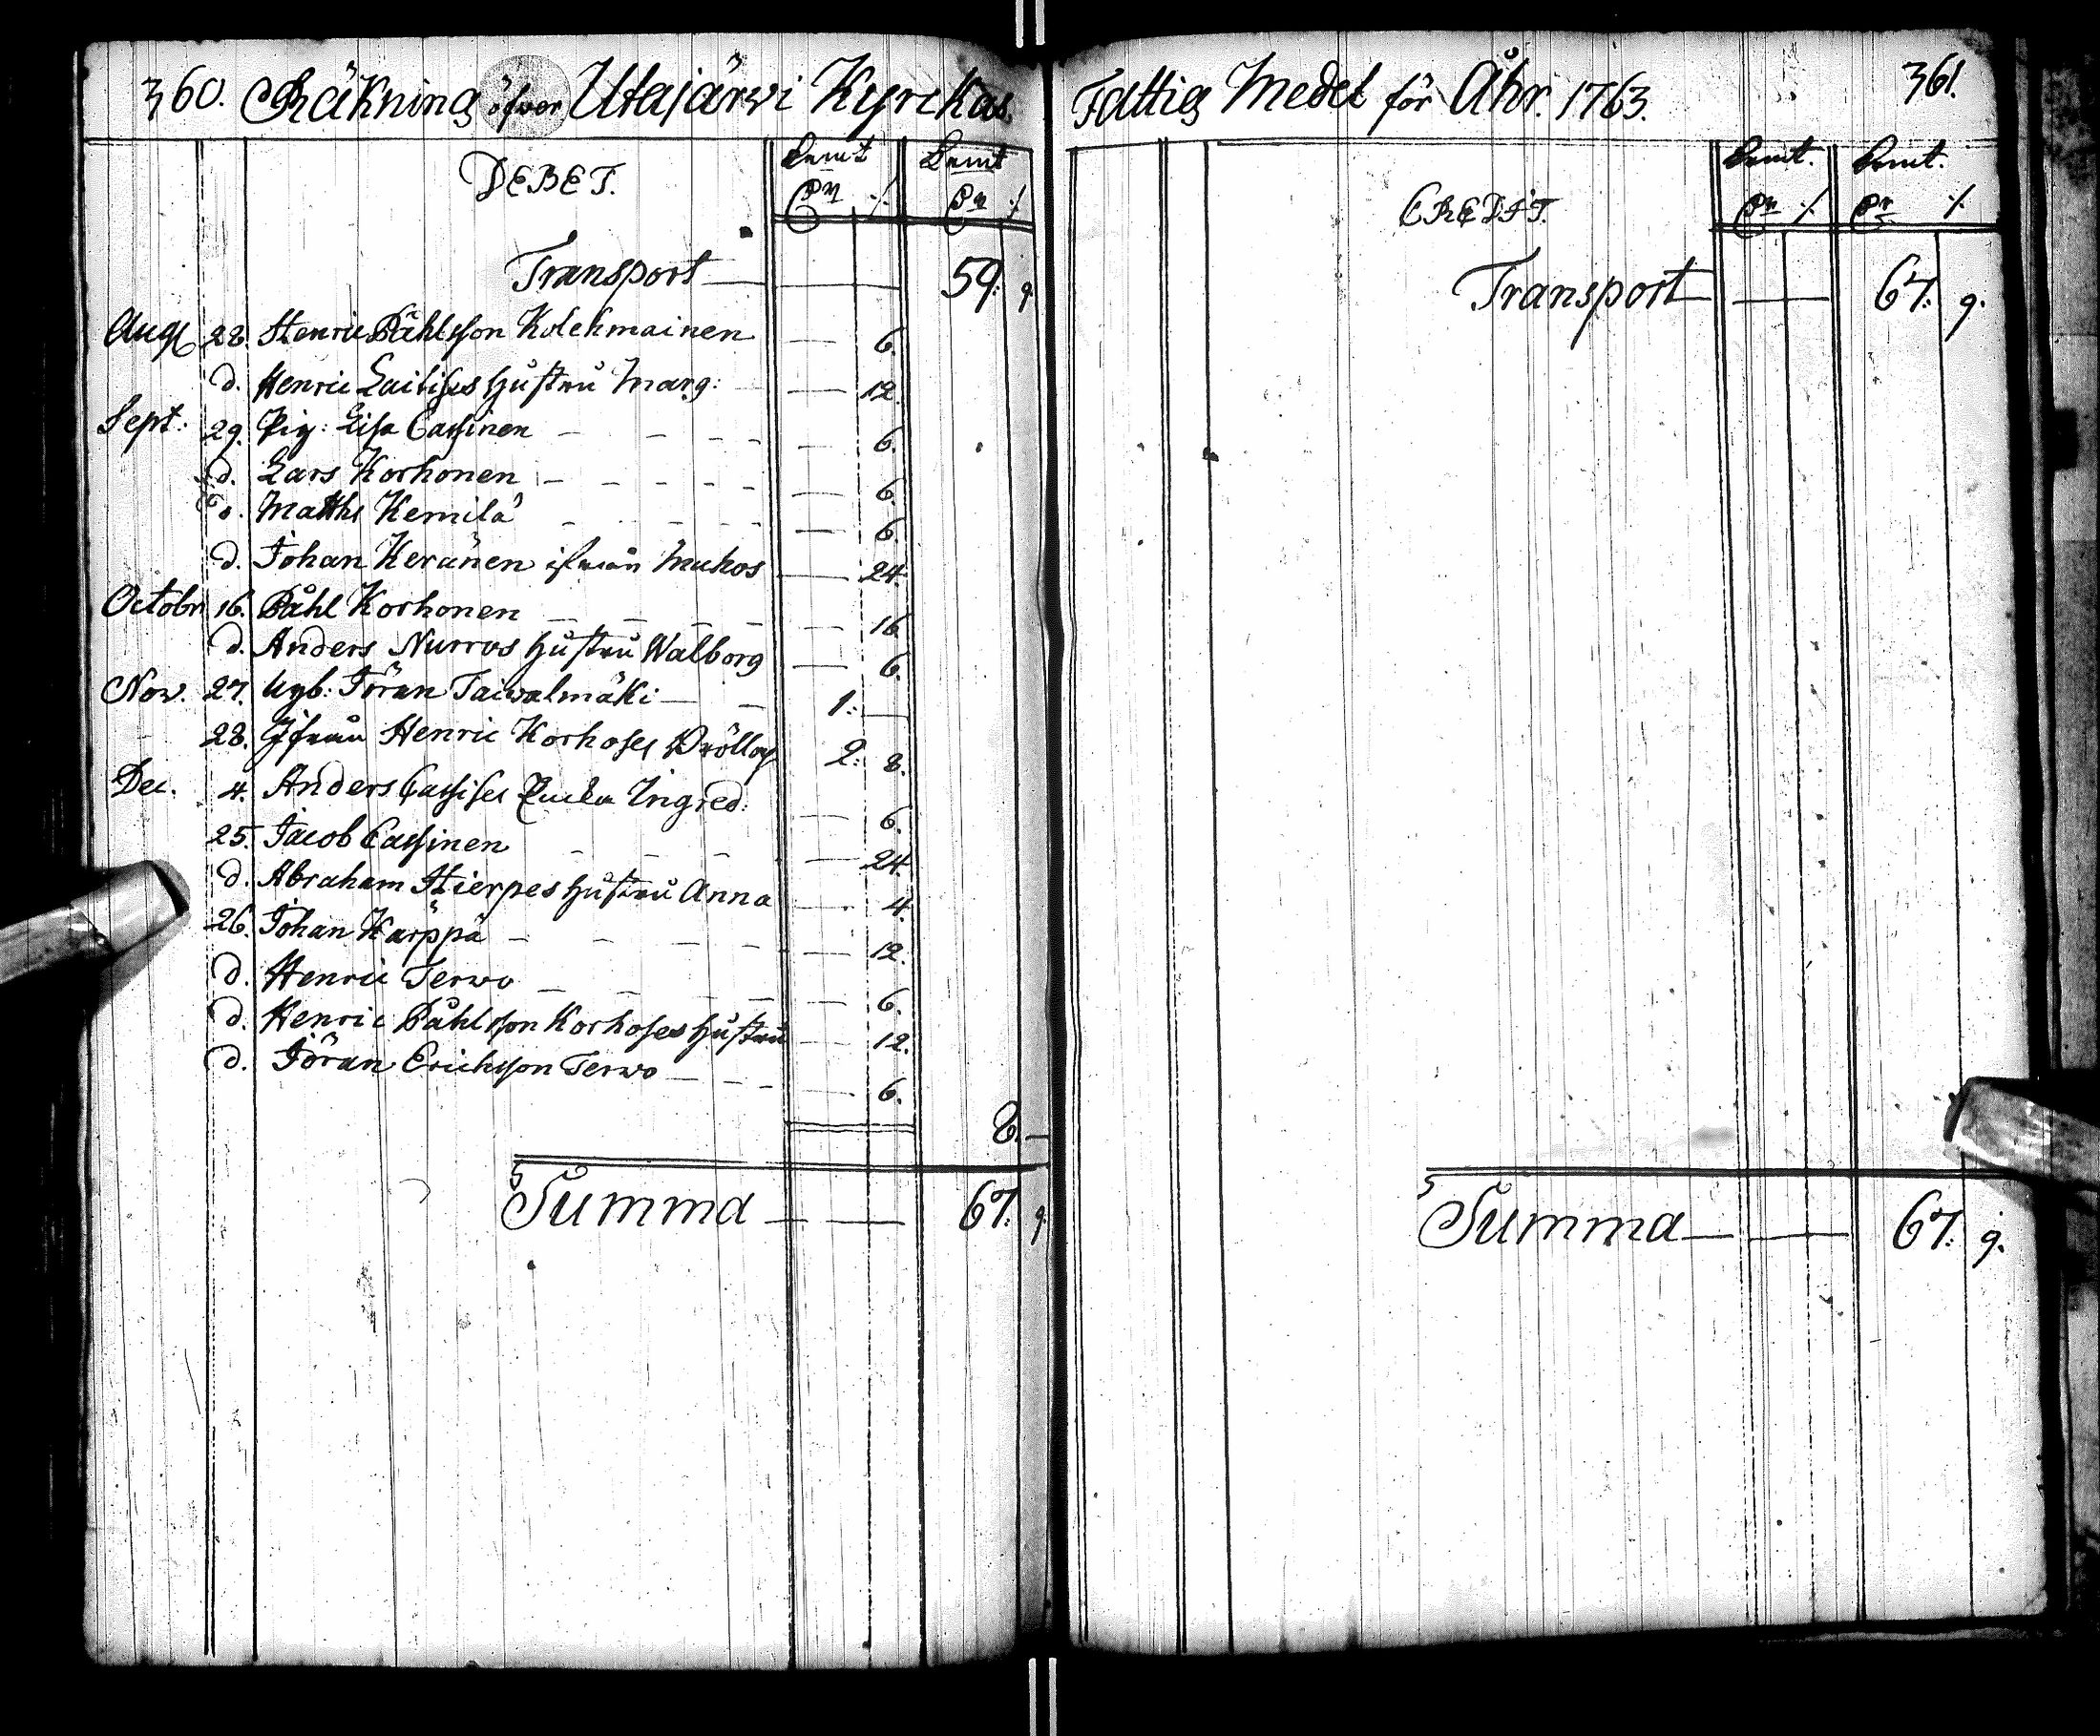 360. Räkning öfwer Utajärwi Kyrckas
DEBET.
Transport 59: 9.
Aug 28. Henric Påhlsson Kolehmainen 6.
d. Henric Laitises Hustru Marg: 12.
Sept. 29. Pig: Lisa Cassinen 6.
d. Lars Korhonen 6.
d. Matths Kemilä 6.
d. Johan Keränen ifrån Muhos 24.
Octobr 16. Påhl Korhonen 16.
d. Anders Nurros Hustru Walborg 6.
Nov. 27. Johan Taiwalmäki 1:
28. Ifrån Henric Korhoses Bröllop 2: 8.
Dec. 4. Anders Cassises Encka Ingred: 6.
25. Jacob Cassinen 24.
d. Abraham Stierpes Hustru Anna 4.
26. Johan Kärppä 12.
d. Henric Terwo 6.
d. Henric Påhlsson Korhoses Hustru 12.
d. Jöran Erichsson Terwo 6.
8.
Summa 67: 9.
Fattig Medel för Åhr. 1763. 361.
CREDIT.
Transport 67: 9.
Summa 67: 9.